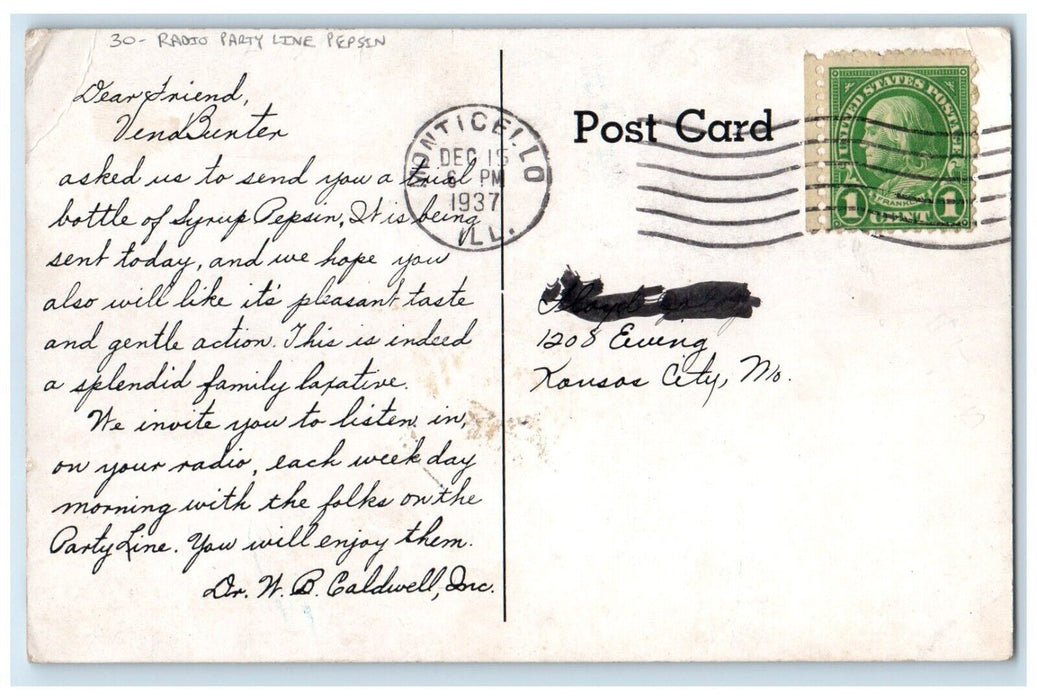 30- RADIO PARTY LINE PEPSIN
Dear Friend,
Vend Bunter
asked us to send you a trial
bottle of Syrup Pepsin. It is being
sent today, and we hope you
also will like it's pleasant taste
and gentle action. This is indeed
a splendid family laxative.
We invite you to listen in,
on your radio, each week day
morning with the folks on the
Party Line. You will enjoy them.
Dr. W. B. Caldwell, Inc.
MONTICELLO
DEC 15
6 PM
1937
ILL.
Post Card
UNITED STATES POSTAGE
FRANKLIN
1 CENT 1
1208 Ewing
Kansas City, Mo.